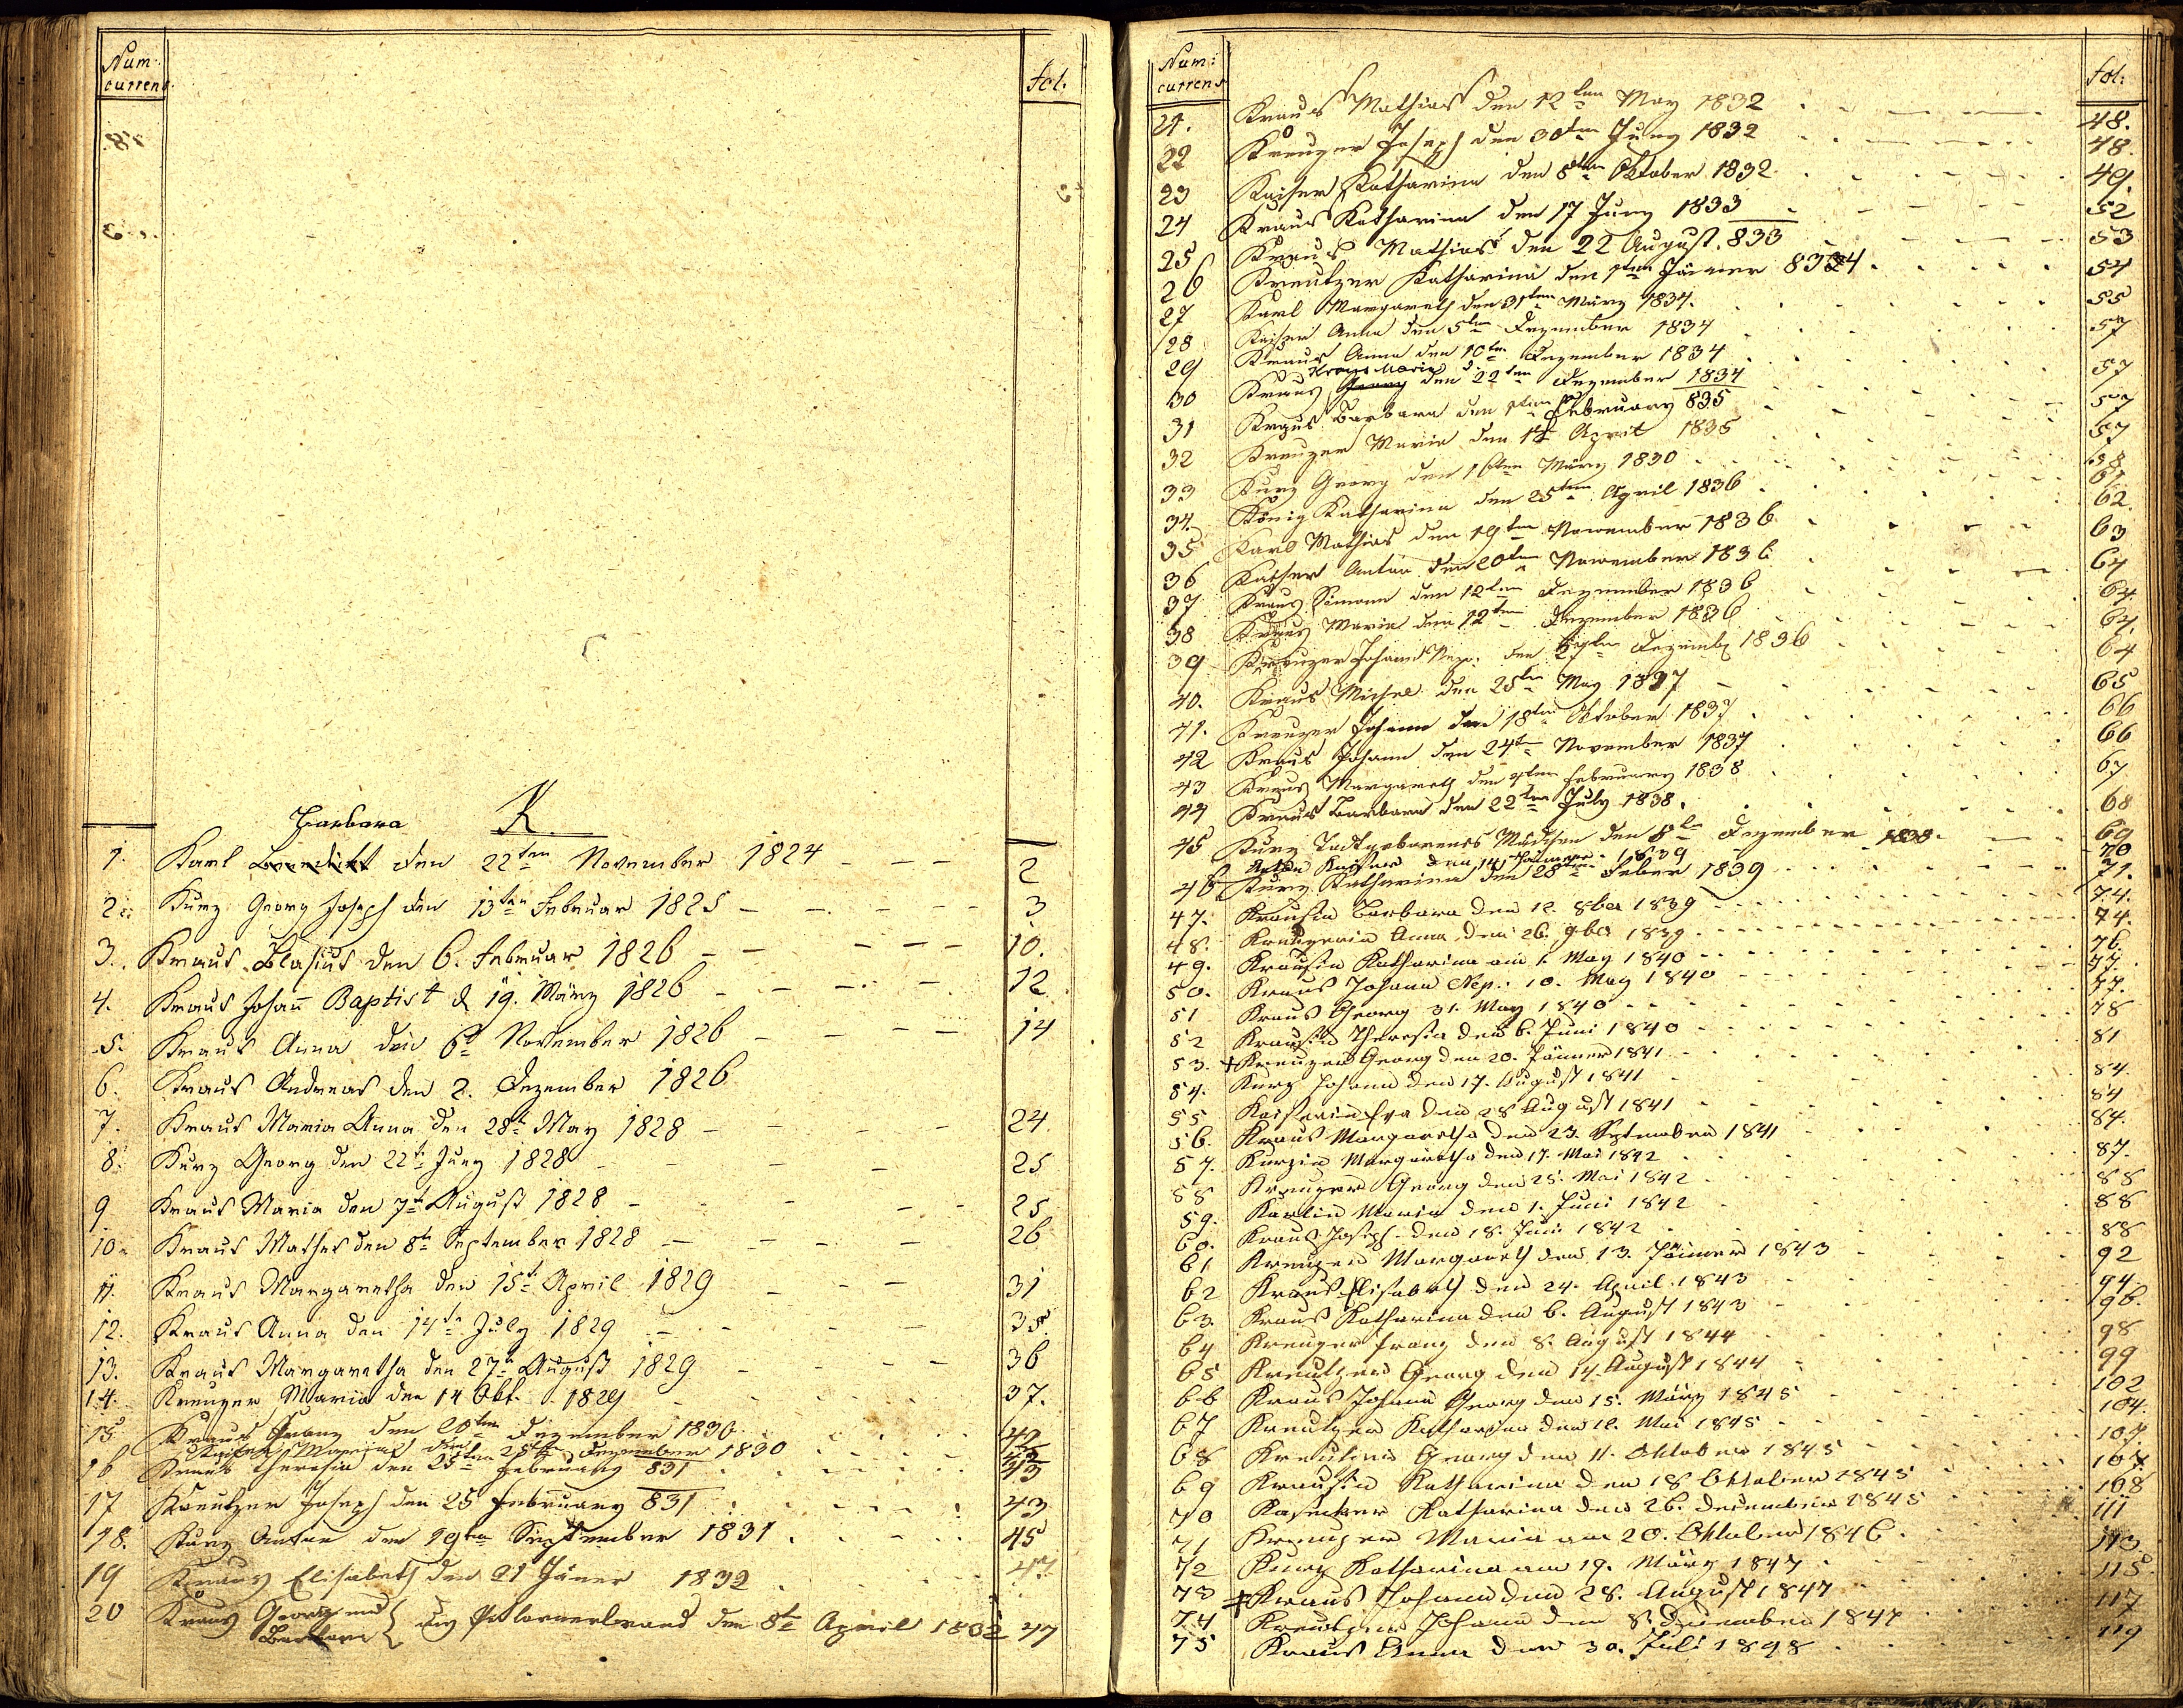 Num:
currens
fol.
Barbara
K
1. Karl Benedikt den 22ten November 1824 2
2. Kurz Georg Joseph den 13ten Februar 1825 3
3. Kraus Blasius den 6. Februar 1826 10.
4. Kraus Johan̄ Baptist d 19. März 1826 12
5. Kraus Anna den 6t November 1826 14
6. Kraus Andreas den 2. Dezember 1826
7. Kraus Maria Anna den 28t May 1828 24
8. Kurz Georg den 22t Juny 1828 25
9 Kraus Maria den 7t August 1828 25
10. Kraus Mathes den 8t September 1828 26
11. Kraus Margaretha den 15t April 1829 31
12. Kraus Anna den 14tn July 1829 35
13. Kraus Margaretha den 27t August 1829 36
14. Kreuzer Maria den 14 Okt. 1829 37.
15 Kraus Franz den 20ten Dezember 1830 42
Kaiser den 25ten Dezember 1830
16 Kraus Theresia den 25ten February 831 43
17 Kreutzer Joseph den 25 February 831 43
18. Kurz Anton den 19ten September 1831 45
19 Kraus Elisabeth den 21 Jäner 1832 47
20 Kraus Georg und Barbara den 8t April 1832 47
Num:
currens
fol:
21. Kraus Mathias den 12ten May 1832 48.
22 Kreuzer Joseph den 30ten Juny 1832 48
23 Kaiser Katharina den 8ten Oktober 1832 49.
24 Kraus Katharina den 17 Juny 1833 52
25 Kraus Mathias den 22 August 833 53
26 Kreutzer Katharina den 1ten Jänner 834 54
27 Karl Margareth den 31ten März 1834. 55
28 Kaiser Anna den 5ten Dezember 1834 57
29 Kraus Anna den 10ten Dezember 1834 57
Kraus Maria
30 Kraus Georg den 22ten Dezember 1834 57
31 Kraus Barbara den February 835 57
32 Kreuzer Maria den April 1835 58
33 Kurz Georg den 16ten März 1830 61
34. König Katharina den 25ten April 1836 62.
35 Karl Mathias den 19ten November 1836 63
36 Kaiser Anton den 20ten November 1836 64
37 Kraus Simon den 12ten Dezember 1836 64
38 Kraus Maria den 12ten Dezember 1836 64
39 Kreuzer Johann Nep. den Dezemb 1836 64
40. Kraus Michael den 25ten May 1837 65
41. Kreuzer Johann den 18ten Oktober 1837 66
42 Kraus Johann den 24ten November 1837 66
43 Kraus Margareth den February 1838 67
44 Kraus Barbara den 22ten July 1838. 68
45 Kurz Todtgeborenes Mädchen den 8te Dezember 1838 69
Anton Kaiser den 14 1839 70
46 Kurz Katharina den 28ten Feber 1839 71.
47. Krausin Barbara den 12. 8ber 1839 74.
48. Kreuzerin Anna den 26. 9ber 1839 74.
49. Krausin Katharina am 1. May 1840 76.
50. Kraus Johann Nep. 10. May 1840 77.
51 Kraus Georg 31. May 1840 77.
52 Krausin Theresia den 6. Juni 1840 78
53. + Kreuzer Georg den 20. Jänner 1841 81
54. Kurz Johann den 17. August 1841 84.
55 Kaiserin Eva den 28 August 1841 84
56. Kraus Margaretha den 23. September 1841 84.
57. Kurzin Margaretha den 17. Mai 1842 87.
58 Kreuzer Georg den 25. Mai 1842 88
59. Karlin Maria den 1. Juni 1842 88
60. Kraus Joseph den 18. Juni 1842 88
61 Kreuzer Margareth den 13. Jänner 1843 92
62 Kraus Elisabeth den 24. April 1843 94.
63. Kraus Katharina den 6. August 1843 96.
64 Kreuzer Franz den 8. August 1844 98
65 Kreutzer Georg den 14. August 1844 99
66 Kraus Johann Georg den 15. März 1845 102
67 Kreutzer Katharina den 12. Mai 1845 104.
68 Kreutzer Georg den 11. Oktober 1845 107
69 Krausin Katharina den 18 Oktober 1845 107
70 Katharina den 26. Dezember 1845 108
71 Kreuzer Maria am 20. Oktober 1846 111
72 Kurz Katharina am 19. März 1847 113.
73 + Kraus Johann den 28. August 1847 115
74 Kreutzer Johann den 8. Dezember 1847 117
75 Kraus Anna den 30. Juli 1848 119